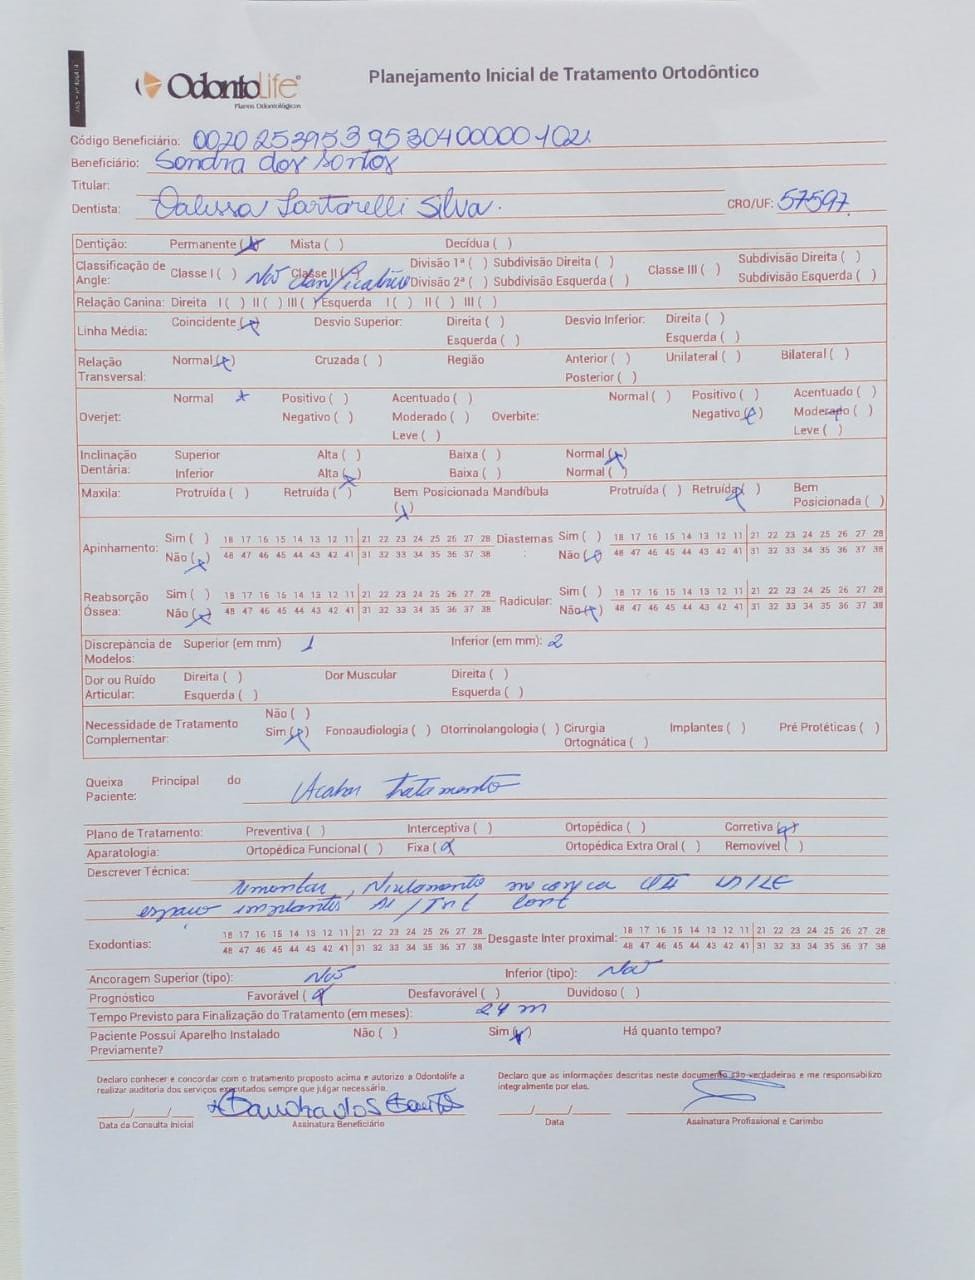 OdontoLife
Planos Odontológicos
Planejamento Inicial de Tratamento Ortodôntico
Código Beneficiário: 00202539539530400000102
Beneficiário: Sandra dos Santos
Titular:
Dentista: Dalissa Sartarelli Silva. CRO/UF: 57597
Dentição: Permanente (x) Mista ( ) Decídua ( )
Classificação de Angle: Classe I ( ) Não Classe II ( ) Divisão 1ª ( ) Subdivisão Direita ( ) Divisão 2ª ( ) Subdivisão Esquerda ( ) Classe III ( ) Subdivisão Direita ( ) Subdivisão Esquerda ( )
Relação Canina: Direita I ( ) II ( ) III ( ) Esquerda I ( ) II ( ) III ( )
Linha Média: Coincidente (x) Desvio Superior: Direita ( ) Esquerda ( ) Desvio Inferior: Direita ( ) Esquerda ( )
Relação Transversal: Normal (x) Cruzada ( ) Região Anterior ( ) Posterior ( ) Unilateral ( ) Bilateral ( )
Overjet: Normal x Positivo ( ) Negativo ( ) Acentuado ( ) Moderado ( ) Leve ( ) Overbite: Normal ( ) Positivo ( ) Negativo (x) Acentuado ( ) Moderado ( ) Leve ( )
Inclinação Dentária: Superior Alta ( ) Baixa ( ) Normal (x)
Inferior Alta (x) Baixa ( ) Normal ( )
Maxila: Protruída ( ) Retruída ( ) Bem Posicionada (x) Mandíbula Protruída ( ) Retruída (x) Bem Posicionada ( )
Apinhamento: Sim ( ) 18 17 16 15 14 13 12 11 21 22 23 24 25 26 27 28 Diastemas: Sim ( ) 18 17 16 15 14 13 12 11 21 22 23 24 25 26 27 28
Não (x) 48 47 46 45 44 43 42 41 31 32 33 34 35 36 37 38 Não (x) 48 47 46 45 44 43 42 41 31 32 33 34 35 36 37 38
Reabsorção Óssea: Sim ( ) 18 17 16 15 14 13 12 11 21 22 23 24 25 26 27 28 Radicular: Sim ( ) 18 17 16 15 14 13 12 11 21 22 23 24 25 26 27 28
Não (x) 48 47 46 45 44 43 42 41 31 32 33 34 35 36 37 38 Não (x) 48 47 46 45 44 43 42 41 31 32 33 34 35 36 37 38
Discrepância de Modelos: Superior (em mm) 1 Inferior (em mm): 2
Dor ou Ruído Articular: Direita ( ) Esquerda ( ) Dor Muscular Direita ( ) Esquerda ( )
Necessidade de Tratamento Complementar: Não ( ) Sim (x) Fonoaudiologia ( ) Otorrinolangologia ( ) Cirurgia Ortognática ( ) Implantes ( ) Pré Protéticas ( )
Queixa Principal do Paciente: Acabar tratamento
Plano de Tratamento: Preventiva ( ) Interceptiva ( ) Ortopédica ( ) Corretiva (x)
Aparatologia: Ortopédica Funcional ( ) Fixa (x) Ortopédica Extra Oral ( ) Removível ( )
Descrever Técnica:
remontar, Nivelamento
espaço implantes
Exodontias: 18 17 16 15 14 13 12 11 21 22 23 24 25 26 27 28 Desgaste Inter proximal: 18 17 16 15 14 13 12 11 21 22 23 24 25 26 27 28
48 47 46 45 44 43 42 41 31 32 33 34 35 36 37 38 48 47 46 45 44 43 42 41 31 32 33 34 35 36 37 38
Ancoragem Superior (tipo): Não Inferior (tipo): Não
Prognóstico Favorável (x) Desfavorável ( ) Duvidoso ( )
Tempo Previsto para Finalização do Tratamento (em meses): 24 m
Paciente Possui Aparelho Instalado Previamente? Não ( ) Sim (x) Há quanto tempo?
Declaro conhecer e concordar com o tratamento proposto acima e autorizo a Odontolife a
realizar auditoria dos serviços executados sempre que julgar necessária.
Declaro que as informações descritas neste documento são verdadeiras e me responsabilizo
integralmente por elas.
Sandra dos Santos
Data da Consulta Inicial Assinatura Beneficiário Data Assinatura Profissional e Carimbo